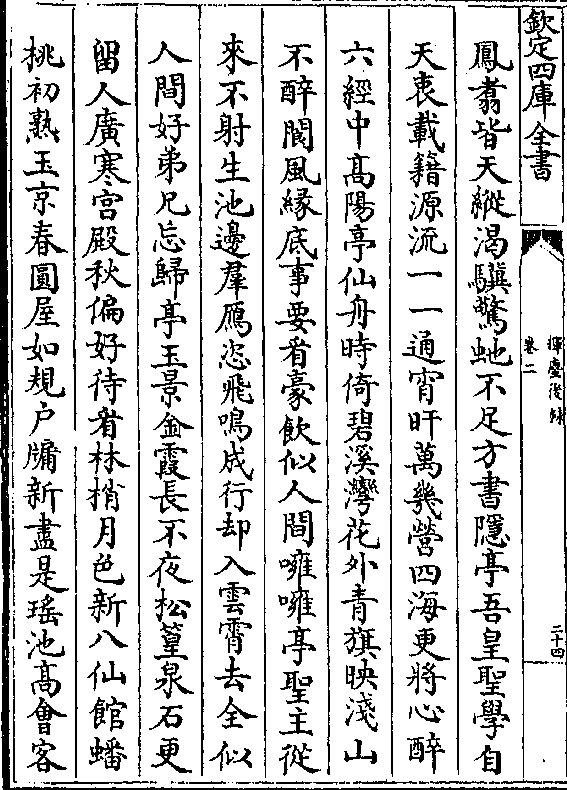 欽定四庫全書
揮麈後録
卷二
二十四
鳳翥皆天縱渴驥驚虵不足方書隱亭吾皇聖學自
天衷載籍源流一一通宵旰萬㡬營四海更將心醉
六經中髙陽亭仙舟時倚碧溪灣花外青旗映淺山
不醉閬風緣底事要看豪飲似人間噰噰亭聖主從
來不射生池邊羣鴈恣飛鳴成行却入雲霄去全似
人間好弟兄忘歸亭玉景金霞長不夜松篁泉石更
留人廣寒宫殿秋偏好待看林梢月色新八仙館蟠
桃初熟玉京春圓屋如規户牖新盡是瑶池髙會客